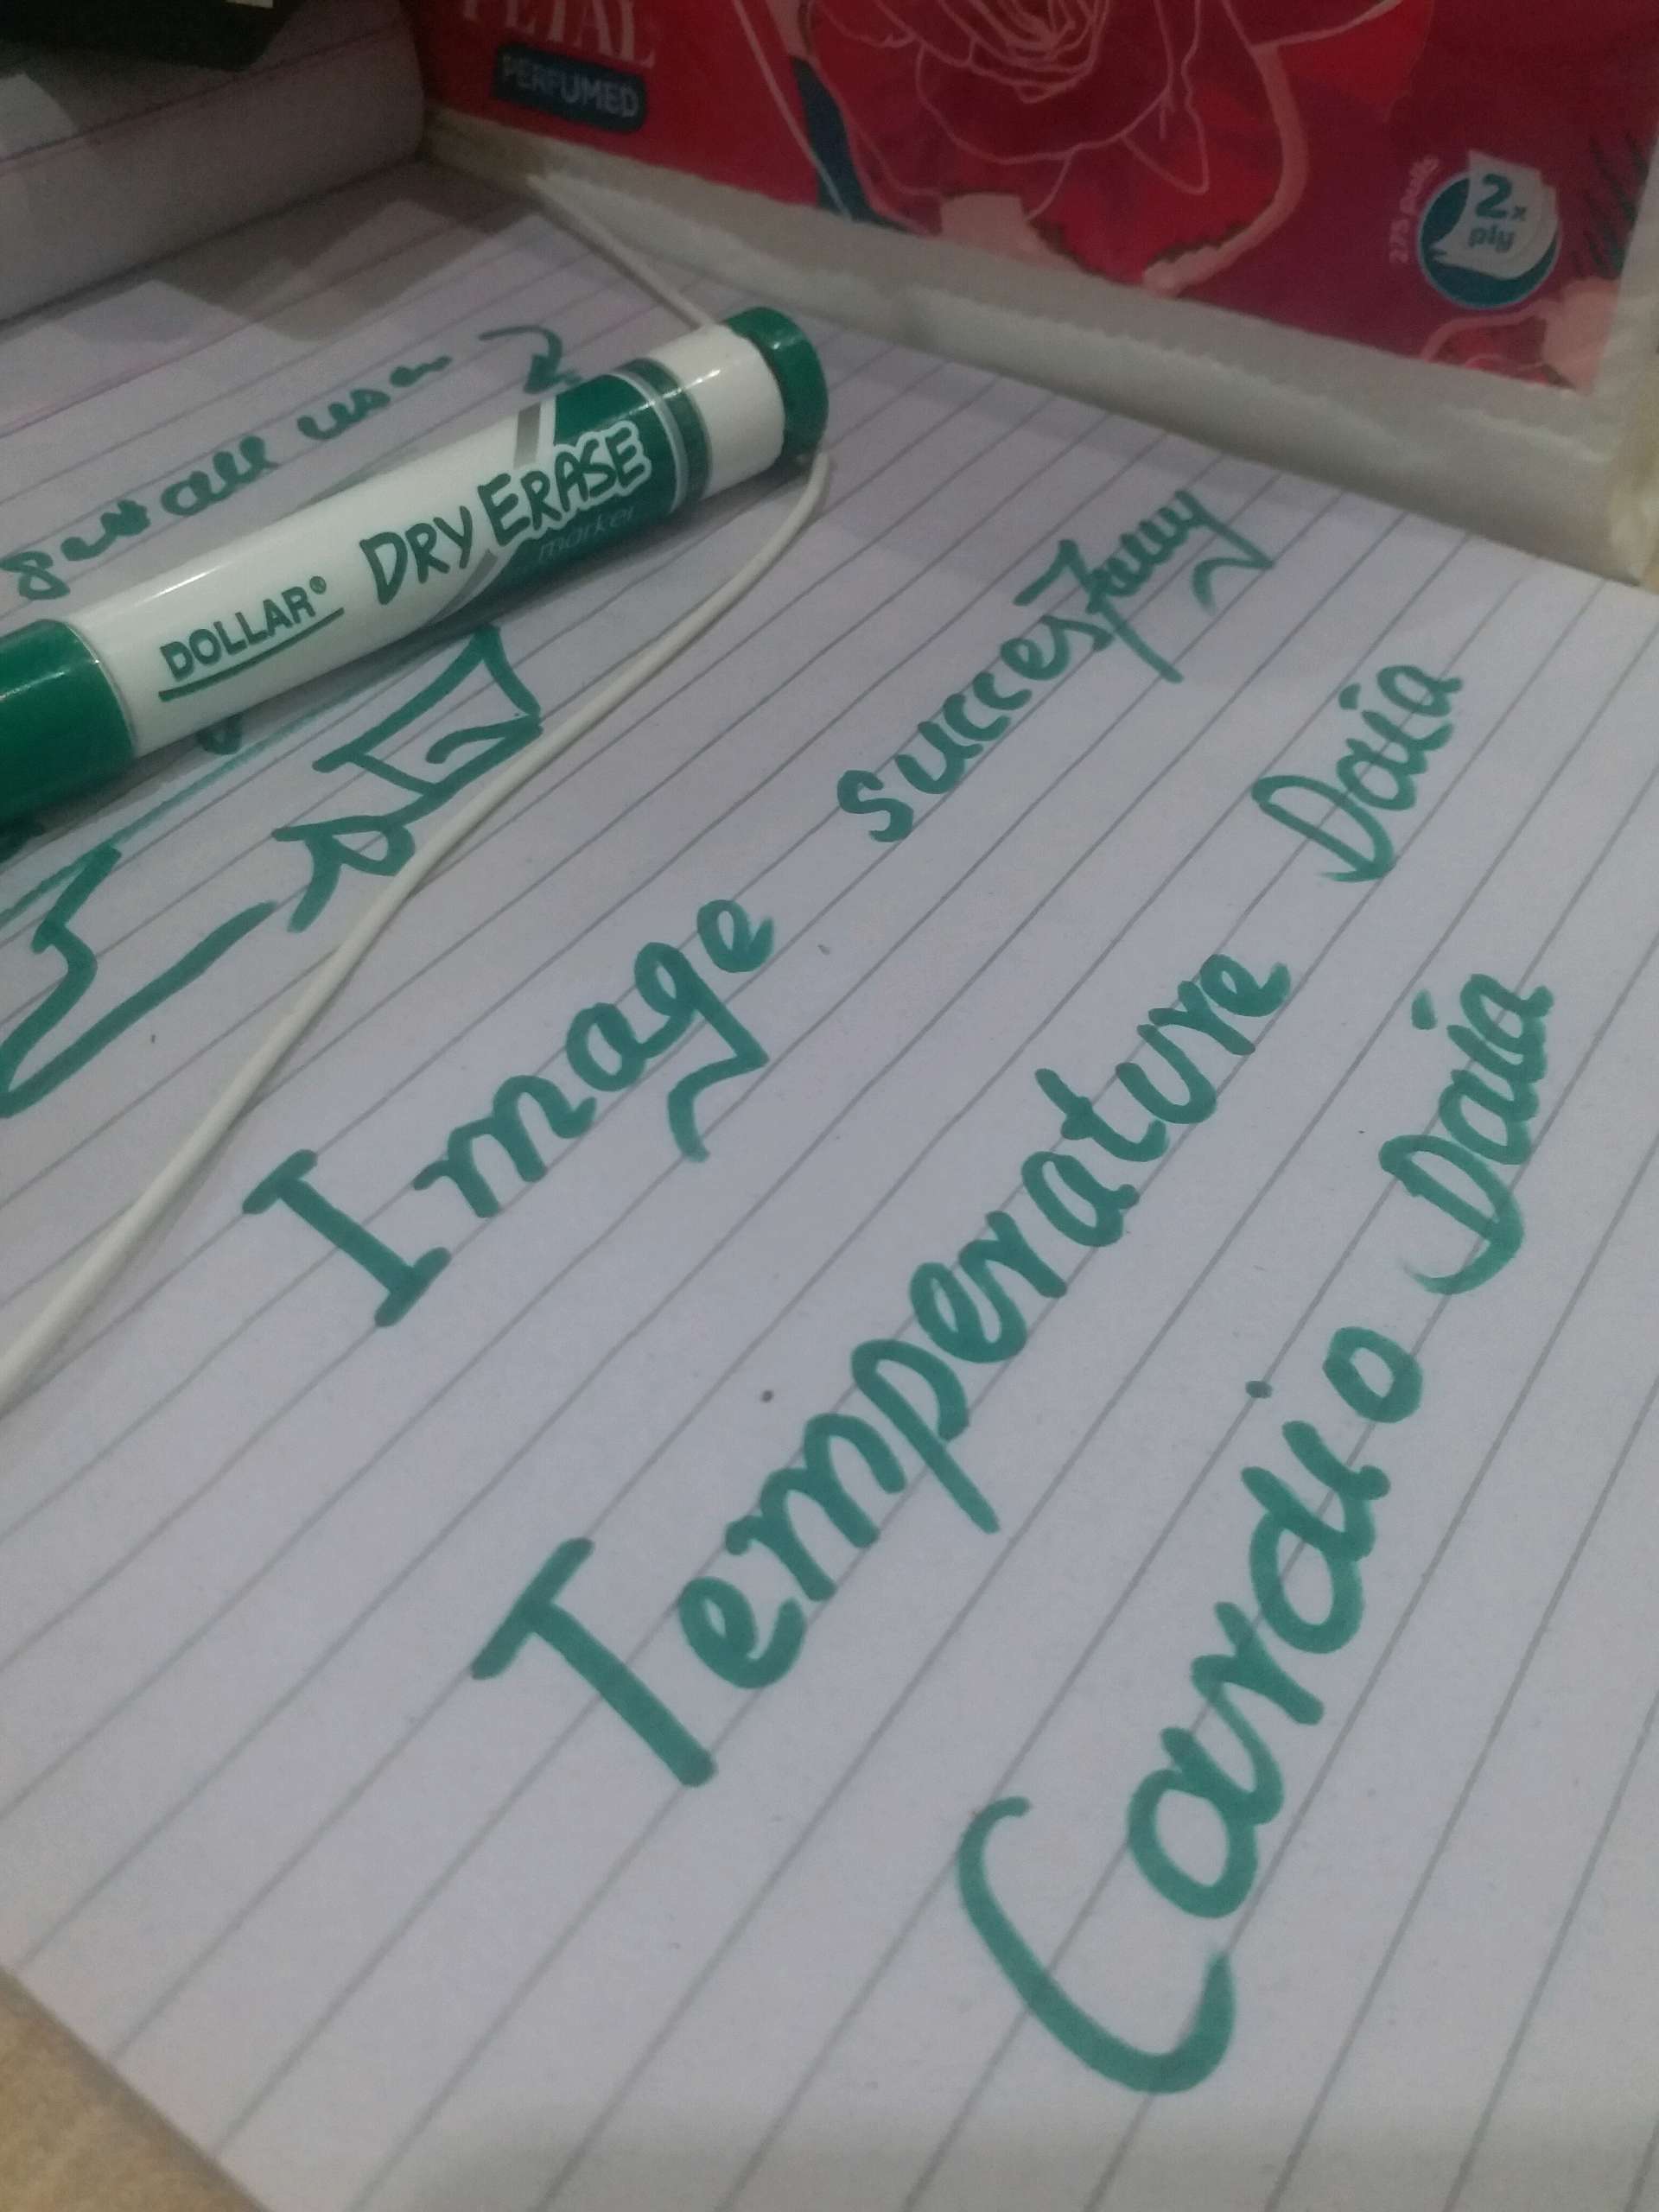 PETAL
PERFUMED
275 pulls
2x
ply
DOLLAR®
DRY ERASE
marker
Image succesfully
Temperature Daia
Cardio Daia